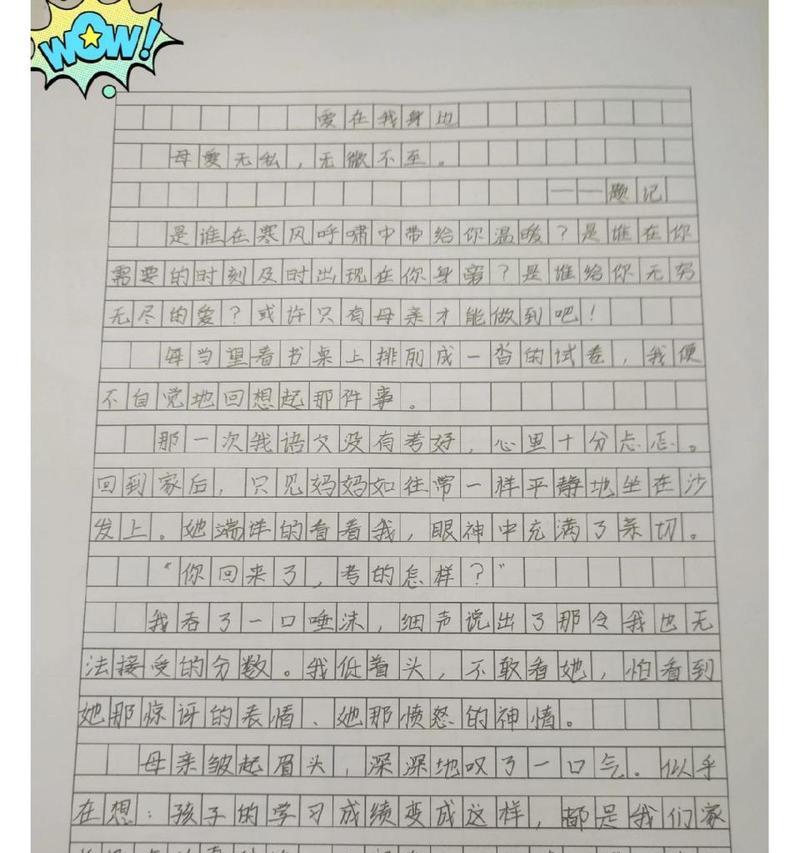 WOW!
爱在我身边
母爱无私，无微不至。
——题记
是谁在寒风呼啸中带给你温暖？是谁在你
需要的时刻及时出现在你身旁？是谁给你无穷
无尽的爱？或许只有母亲才能做到吧！
每当望着书桌上排列成一沓的试卷，我便
不自觉地回想起那件事。
那一次我语文没有考好，心里十分忐忑。
回到家后，只见妈妈如往常一样平静地坐在沙
发上。她端详的看着我，眼神中充满了亲切。
“你回来了，考的怎样？”
我吞了一口唾沫，细声说出了那令我也无
法接受的分数。我低着头，不敢看她，怕看到
她那惊讶的表情、她那愤怒的神情。
母亲皱起眉头，深深地叹了一口气。似乎
在想：孩子的学习成绩变成这样，都是我们家